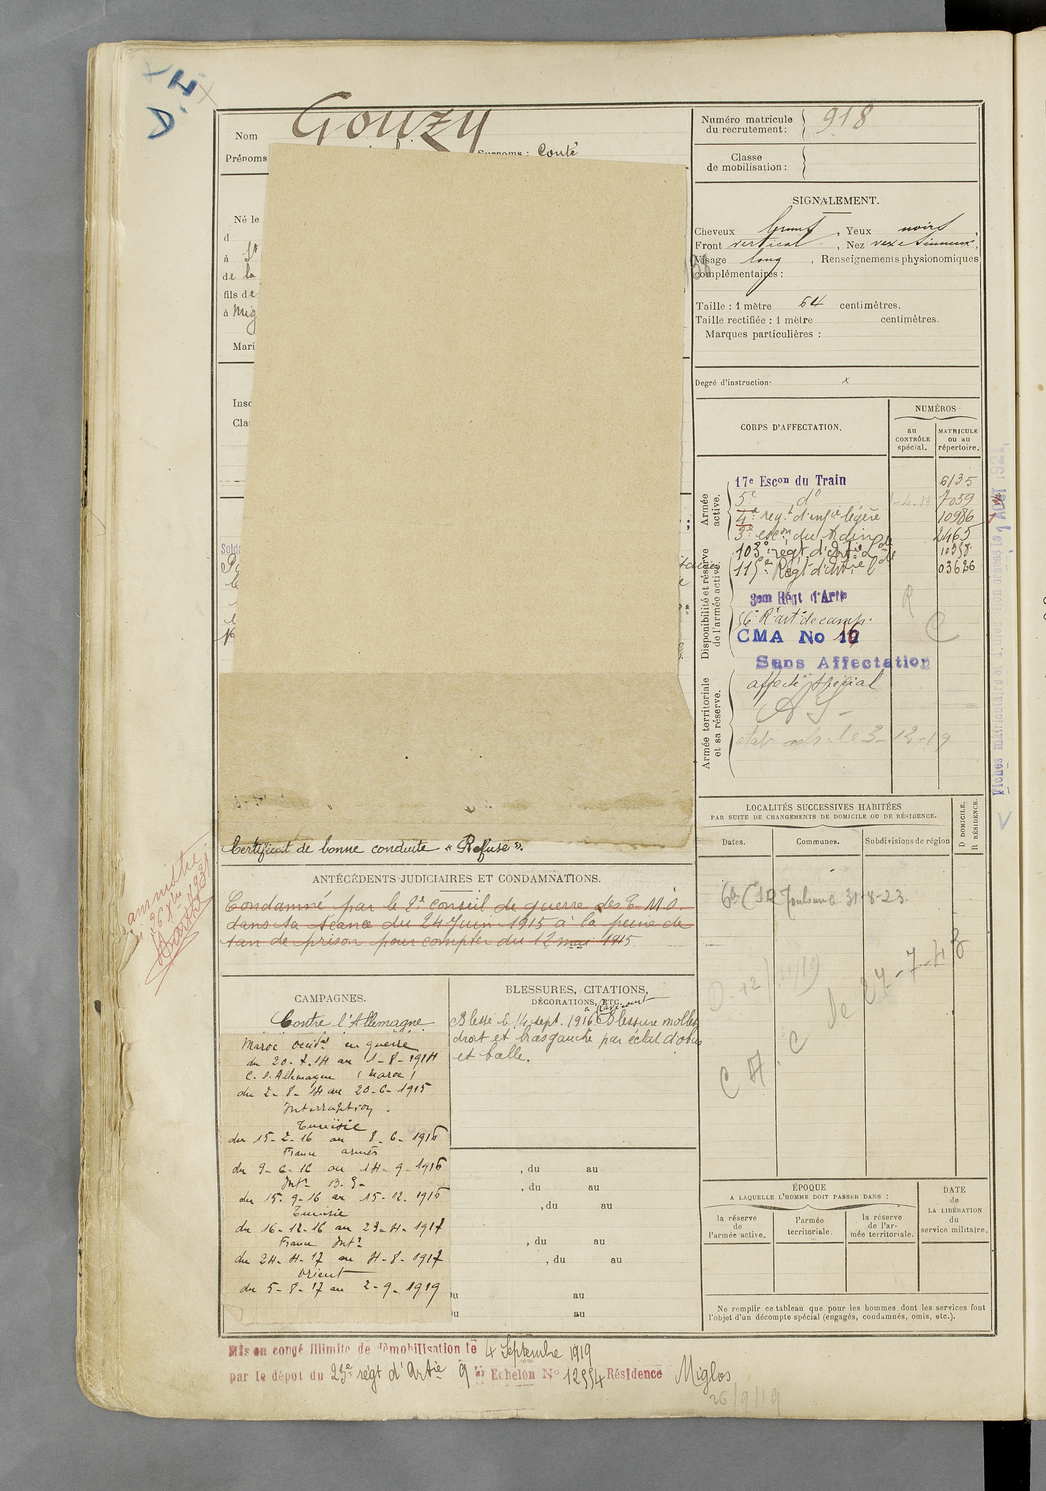 H
D
Nom Gouzy
Prénoms
Surnoms : Conté
Né le
d
à St
de la
fils de
à Mig
Mari
Insc
Clas
Certificat de bonne conduite « Refusé ».
ANTÉCÉDENTS JUDICIAIRES ET CONDAMNATIONS.
Condamné par le 2e conseil de guerre des T. M. O.
dans sa séance du 24 Juin 1915 à la peine de
1 an de prison pour compter du 12 mai 1915
CAMPAGNES.
Contre l'Allemagne
Maroc Occidal en guerre
du 20-7-14 au 1-8-1914
C. l'Allemagne (Maroc)
du 2-8-14 au 20-6-1915
Interruption.
Tunisie
du 15-2-16 au 8-6-1916
France armées
du 9-6-16 au 14-9-1916
Intr B. G.
du 15-9-16 au 15-12-1916
Tunisie
du 16-12-16 au 23-4-1917
France Intr
du 24-4-17 au 4-8-1917
Orient
du 5-8-17 au 2-9-1919
BLESSURES, CITATIONS,
DÉCORATIONS, ETC.
Blessé le 14 sept. 1916 à Blessure mollet
droit et bras gauche par éclat d'obus
et balle.
, du au
, du au
, du au
, du au
, du au
au
au
Mis en congé illimité de démobilisation le 4 Septembre 1919
par le dépôt du 23e régt d'Artie 9e Echelon No 12554 Résidence Miglos
26/9/19
Numéro matricule
du recrutement : 918
Classe
de mobilisation :
SIGNALEMENT.
Cheveux bruns, Yeux noirs,
Front vertical, Nez vexe sinueux,
Visage long, Renseignements physionomiques
complémentaires :
Taille : 1 mètre 64 centimètres.
Taille rectifiée : 1 mètre centimètres.
Marques particulières :
Degré d'instruction: x
CORPS D'AFFECTATION.
NUMÉROS
au
CONTRÔLE
spécial.
MATRICULE
ou au
répertoire.
Armée
active.
17e Escon du Train 6135
5e do 7059
4e regt d'infie légère 10986
3e escon du train 2465
Disponibilité et réserve
de l'armée active.
103e regt d'artie Lde
115e Régt d'artie Lde 03626
3em Régt d'Artie
56e Rt art de camp.
CMA No 16
Sans Affectation
R
C
Armée territoriale
et sa réserve.
affecté spécial
A S
le 3-12-19
LOCALITÉS SUCCESSIVES HABITÉES
PAR SUITE DE CHANGEMENTS DE DOMICILE OU DE RÉSIDENCE.
Dates.
Communes.
Subdivisions de région
D DOMICILE.
R RÉSIDENCE.
Toulouse 31-8-23.
de 27-7-43
ÉPOQUE
A LAQUELLE L'HOMME DOIT PASSER DANS :
la réserve
de
l'armée active.
l'armée
territoriale.
la réserve
de l'ar-
mée territoriale.
DATE
de
LA LIBÉRATION
du
service militaire.
Ne remplir ce tableau que pour les hommes dont les services font
l'objet d'un décompte spécial (engagés, condamnés, omis, etc.).